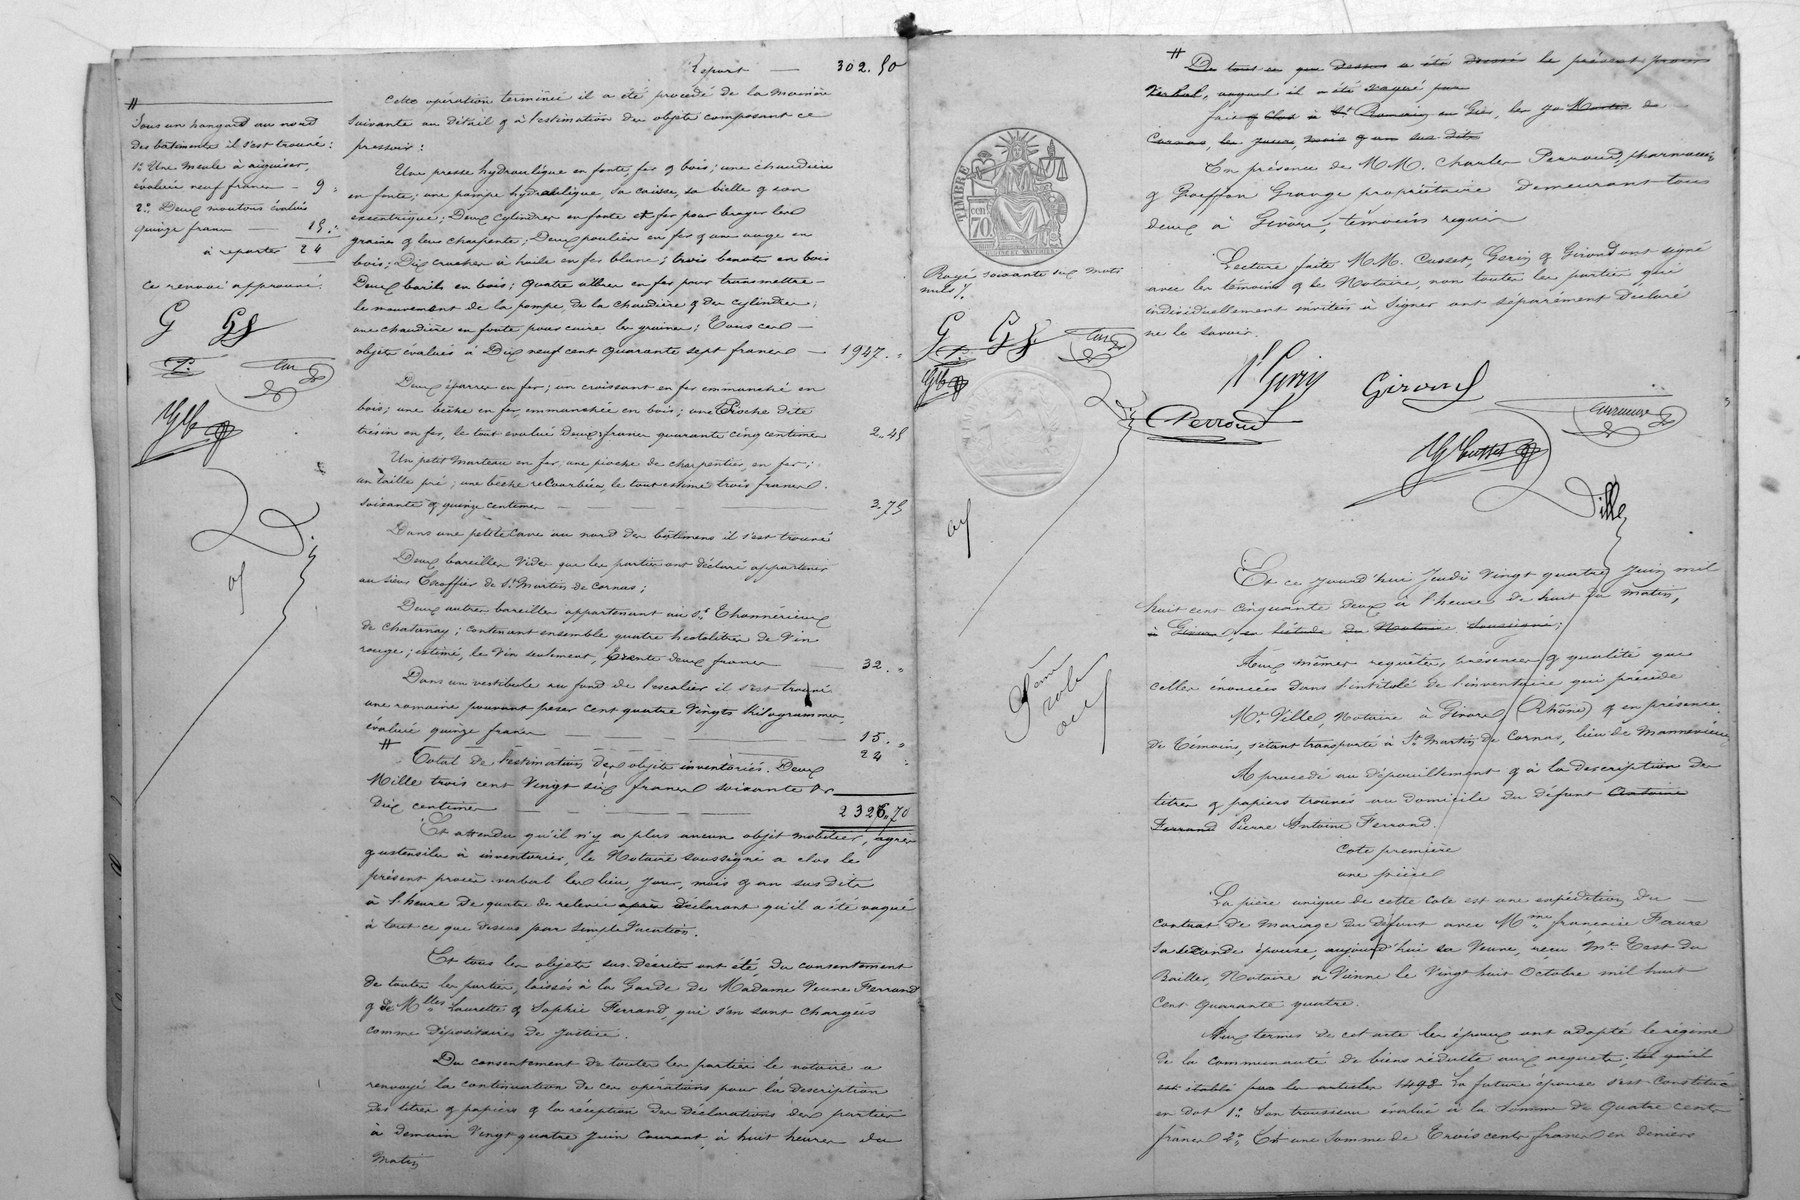 Report — 302.50
#
Sous un hangard au nord
des bâtiments il s'est trouvé :
1° Une meule à aiguiser,
évaluée neuf francs — 9 "
2° Deux moutons évalués
quinze francs — 15 "
à reporter 24
ce renvoi approuvé.
G GJ
Cette opération terminée il a été procédé de la manière
suivante au détail & à l'estimation des objets composant ce
pressoir :
Une presse hydraulique en fonte, fer & bois ; une chaudière
en fonte ; une pompe hydraulique, sa caisse, sa bielle & son
excentrique ; Deux cylindres en fonte et fer pour broyer les
graines & leur charpente ; Deux poulies en fer & une auge en
bois ; Dix cruches à huile en fer blanc ; trois benots en bois
Deux barils en bois ; quatre arbres en fer pour transmettre
le mouvement de la pompe, de la chaudière & des cylindres ;
une chaudière en fonte pour cuire les graines ; Tous ces
objets évalués à Dix neuf cent quarante sept francs — 1947. "
Deux éparres en fer ; un croissant en fer emmanché en
bois ; une bêche en fer, emmanchée en bois ; une Pioche dite
trésin en fer, le tout évalué deux francs quarante cinq centimes 2.45
Un petit marteau en fer ; une pioche de charpentier, en fer ;
un taille pré ; une bêche recourbée, le tout estimé trois francs
soixante & quinze centimes — 3.75
Dans une petite cave au nord des bâtimens il s'est trouvé
Deux bareilles vides que les parties ont déclaré appartenir
au sieur Escoffier de St Martin de Cornas ;
Deux autres bareilles appartenant au Sr Thonnérieux
de Chatanay ; contenant ensemble quatre hectolitres de vin
rouge ; estimé, le vin seulement, trente deux francs — 32. "
Dans un vestibule au fond de l'escalier il s'est trouvé
une romaine pouvant peser cent quatre vingts kilogrammes,
évaluée quinze francs — 15. "
# 24 "
Total de l'estimation des objets inventoriés. Deux
Mille trois cent vingt six francs soixante &
Dix centimes — 2326.70
Et attendu qu'il n'y a plus aucun objet mobilier, agrès
& ustensiles à inventorier, le Notaire soussigné a clos le
présent procès-verbal les lieu, jour, mois & an sus dits
à l'heure de quatre de relevée après déclarant qu'il a été vaqué
à tout ce que dessus par simple vacation.
Et tous les objets sus-décrits ont été, du consentement
de toutes les parties, laissés à la Garde de Madame Veuve Ferrand
& de Melles Laurette & Sophie Ferrand, qui s'en sont chargés
comme dépositaires de justice.
Du consentement de toutes les parties le notaire a
renvoyé la continuation de ces opérations pour la description
des titres & papiers & la réception des déclarations des parties
à demain vingt quatre juin courant, à huit heures du
matin
TIMBRE
70
Rayé soixante six mots
nuls /.
G GJ
# De tout ce que dessus a été dressé le présent procès
Verbal, auquel il a été vaqué par
fait & clos à St Romain en Gier, les jo Martin de
Cornas, les jour, mois & an sus dits
En présence de M.M. Charles Perroud, pharmacien
& Groiffon Grange propriétaire demeurant tous
deux à Givors, témoins requis
Lecture faite M.M. Cusset, Gerin & Giroud ont signé
avec les témoins & le Notaire, non toutes les parties qui
individuellement invitées à signer ont séparément déclaré
ne le savoir.
Gerin Giroud
Perroud
Cusset
Ville
Et ce jourd'hui Jeudi vingt quatre juin mil
huit cent cinquante deux à l'heure de huit du matin,
à Givors, en l'étude du Notaire soussigné ;
Aux mêmes requêtes, présences & qualité que
celles énoncées dans l'intitulé de l'inventaire qui précède
Me Ville, Notaire à Givors (Rhône) & en présence
de Témoins, s'étant transporté à St Martin de Cornas, lieu de Mannevieux
A procédé au dépouillement & à la description des
titres & papiers trouvés au domicile du défunt Antoine
Ferrand Pierre Antoine Ferrand.
Cote première
une pièce
La pièce unique de cette cote est une expédition du
contrat de mariage du défunt avec Mme françoise Faure
sa seconde épouse, aujourd'hui sa veuve, reçu Me Test du
Bailler, Notaire à Vienne le vingt huit Octobre mil huit
cent quarante quatre.
Aux termes de cet acte les époux ont adopté le régime
de la communauté de biens réduite aux acquêts, tel qu'il
est établi par les articles 1498 La future épouse s'est constitué
en dot 1° Son trousseau évalué à la somme de quatre cents
francs 2° Et une somme de Trois cents francs en deniers